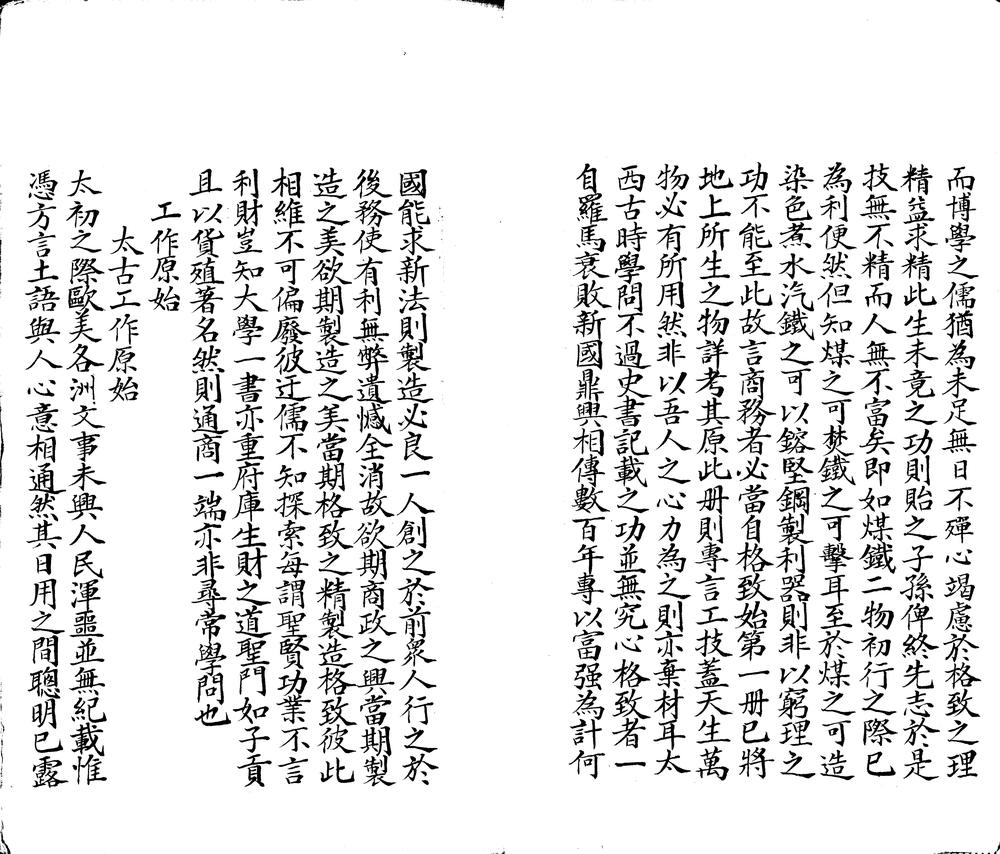 而博學之儒猶為未足無日不殫心竭慮於格致之理
精益求精此生未竟之功則貽之子孫俾終先志於是
技無不精而人無不富矣即如煤鐵二物初行之際已
為利便然但知煤之可焚鐵之可擊耳至於煤之可造
染色煮水汽鐵之可以鎔堅鋼製利器則非以窮理之
功不能至此故言商務者必當自格致始第一册已將
地上所生之物詳考其原此册則專言工技蓋天生萬
物必有所用然非以吾人之心力為之則亦棄材耳太
西古時學問不過史書記載之功並無究心格致者一
自羅馬衰敗新國鼎興相傳數百年專以富强為計何
國能求新法則製造必良一人創之於前衆人行之於
後務使有利無弊遺憾全消故欲期商政之興當期製
造之美欲期製造之美當期格致之精製造格致彼此
相維不可偏廢彼迂儒不知探索每謂聖賢功業不言
利財豈知大學一書亦重府庫生財之道聖門如子貢
且以貨殖著名然則通商一端亦非尋常學問也
工作原始
太古工作原始
太初之際歐美各洲文事未興人民渾噩並無紀載惟
憑方言土語與人心意相通然其日用之間聰明已露